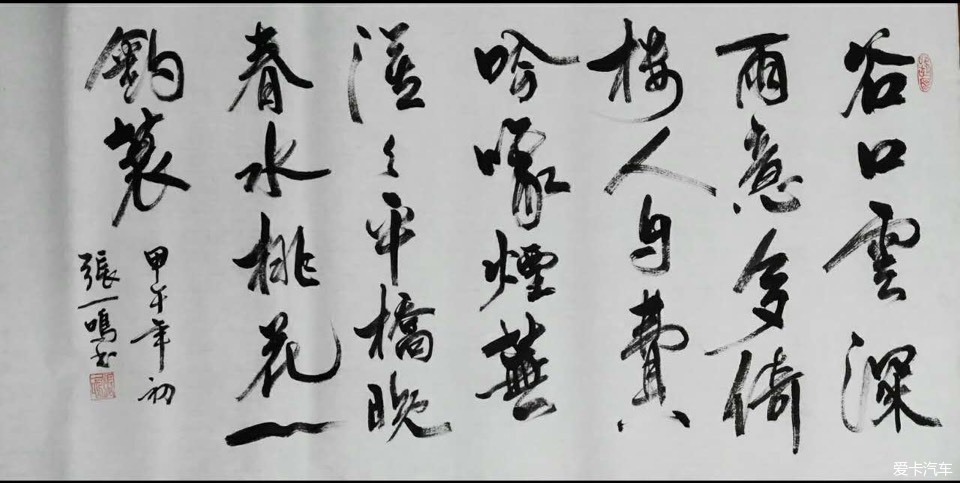 谷口雲深
雨意多倚
樓人自費
吟煙蕪
平橋晚
春水桃花一
釣蓑
甲午年初
張一鳴書
爱卡汽车